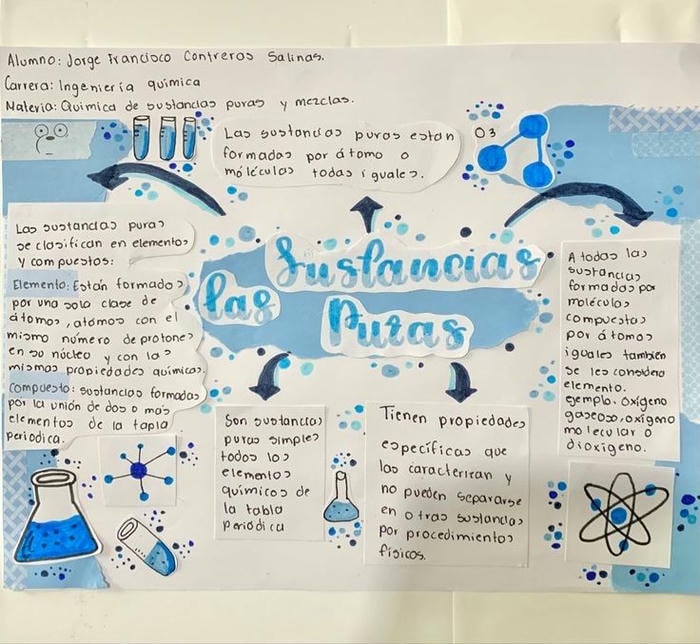 Alumno: Jorge Francisco Contreras Salinas.
Carrera: Ingeniería química
Materia: Química de sustancias puras y mezclas.
Las sustancias puras estan
formadas por átomo o
móléculas todas iguales.
O3
Las
Sustancias
Puras
Las sustancias puras
se clasifican en elementos
y compuestos:
Elemento: Están formados
por una solo clase de
átomos, atómos con el
mismo número de protones
en su núcleo y con las
mismas propiedades químicas.
Compuesto: sustancias formadas
por la unión de dos o más
elementos de la tapla
periodica.
Son sustancias
puras simples
todos los
elementos
químicos de
la tabla
periódica
Tienen propiedades
específicas que
las caracterizan y
no pueden separarse
en otras sustancias
por procedimientos
físicos.
A todas las
sustancias
formadas por
moléculas
compuestas
por átomos
iguales también
se les considera
elemento.
ejemplo. Oxígeno
gaseoso, oxígeno
molecular o
dioxígeno.